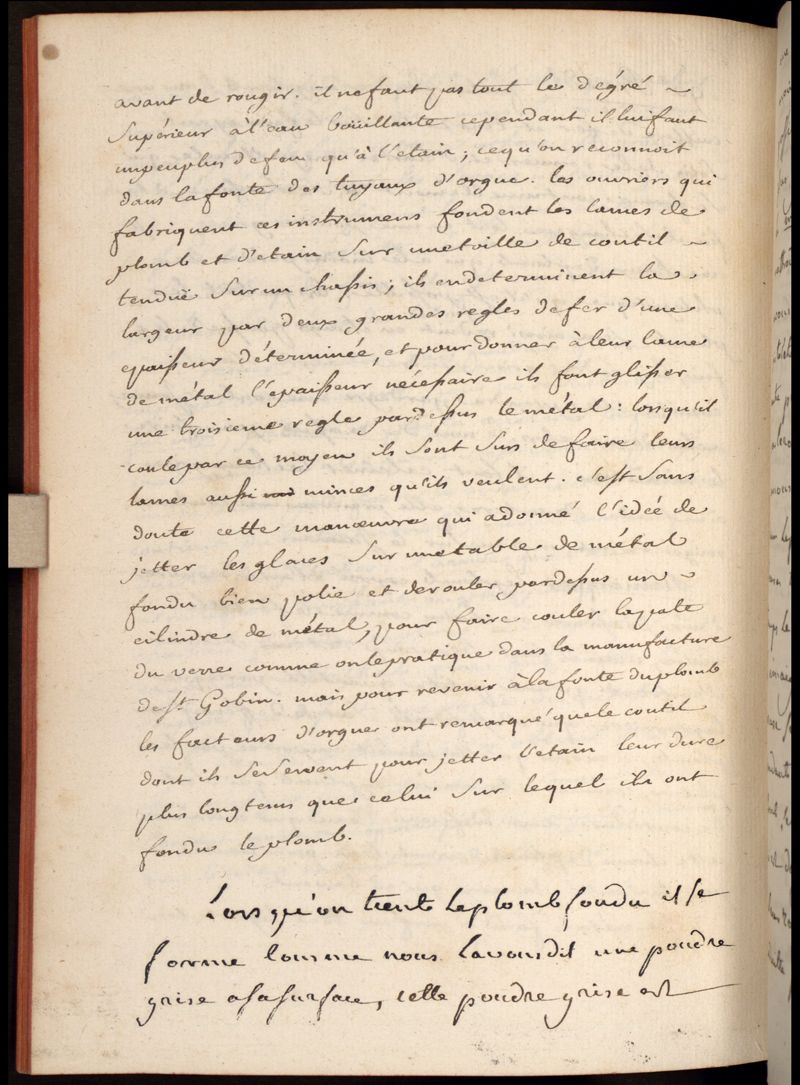 avant de rougir. il ne faut pas tout le dégré ~
supérieur à l'eau boüillante cependant il lui faut
un peu plus de feu qu'à l'etain; ce qu'on reconnoit
dans la fonte des tuyaux d'orgue. les ouvriers qui
fabriquent ces instrumens fondent les lames de
plomb et d'etain sur une toille de coutil ~
tenduë sur un chassis; ils en determinent la
largeur par deux grandes regles de fer d'une
epaisseur déterminée, et pour donner à leur lame
de métal l'epaisseur nécessaire ils font glisser
une troisieme regle pardessus le métal: lorsqu'il
coule par ce moyen ils sont surs de faire leurs
lames aussi minces qu'ils veulent. c'est sans
doute cette manœuvre qui a donné l'idée de
jetter les glaces sur une table de métal
fondu bien polie et de rouler pardessus un ~
cilindre de métal, pour faire couler la pate
du verre comme on le pratique dans la manufacture
de St. Gobin. mais pour revenir à la fonte du plomb
les facteurs d'orgue ont remarqué que le coutil
dont ils se servent pour jetter l'etain leur dure
plus longtems que celui sur lequel ils ont
fondu le plomb.
Lorsqu'on tient le plomb fondu il se
forme comme nous l'avons dit une poudre
grise a sa surface, cette poudre grise est